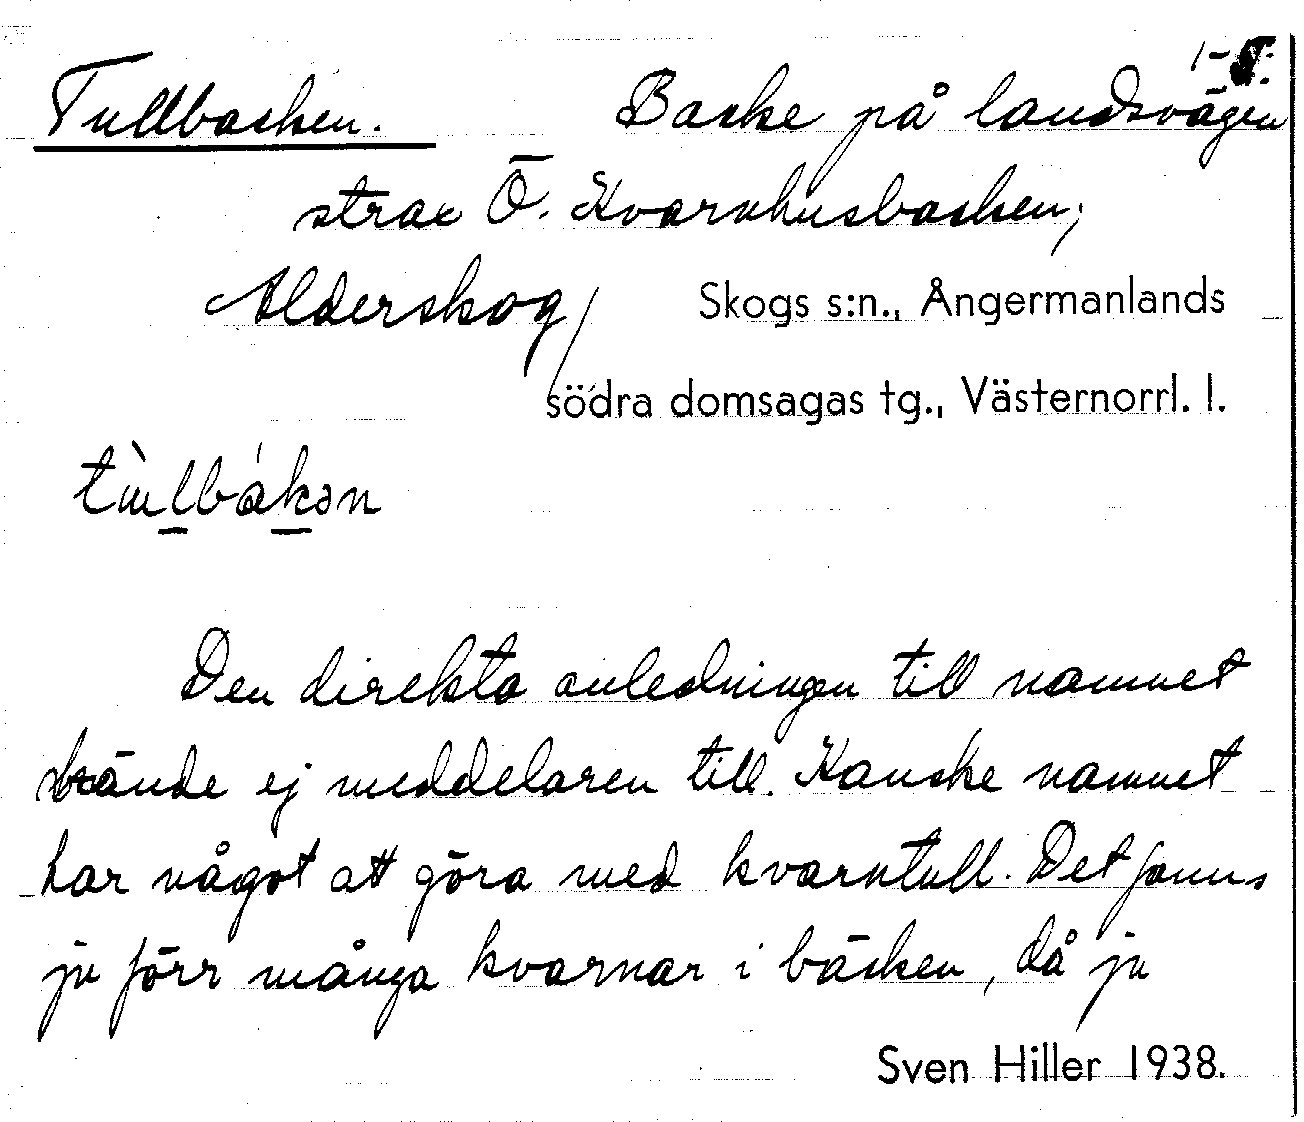 Tullbacken. Backe på landsvägen
strax Ö. Kvarnhusbacken,
Alderskog, Skogs s:n., Ångermanlands
södra domsagas tg., Västernorrl. l.
tùlbákən
Den direkta anledningen till namnet
kände ej meddelaren till. Kanske namnet
har något att göra med kvarntull. Det fanns
ju förr många kvarnar i bäcken, då ju
Sven Hiller 1938.